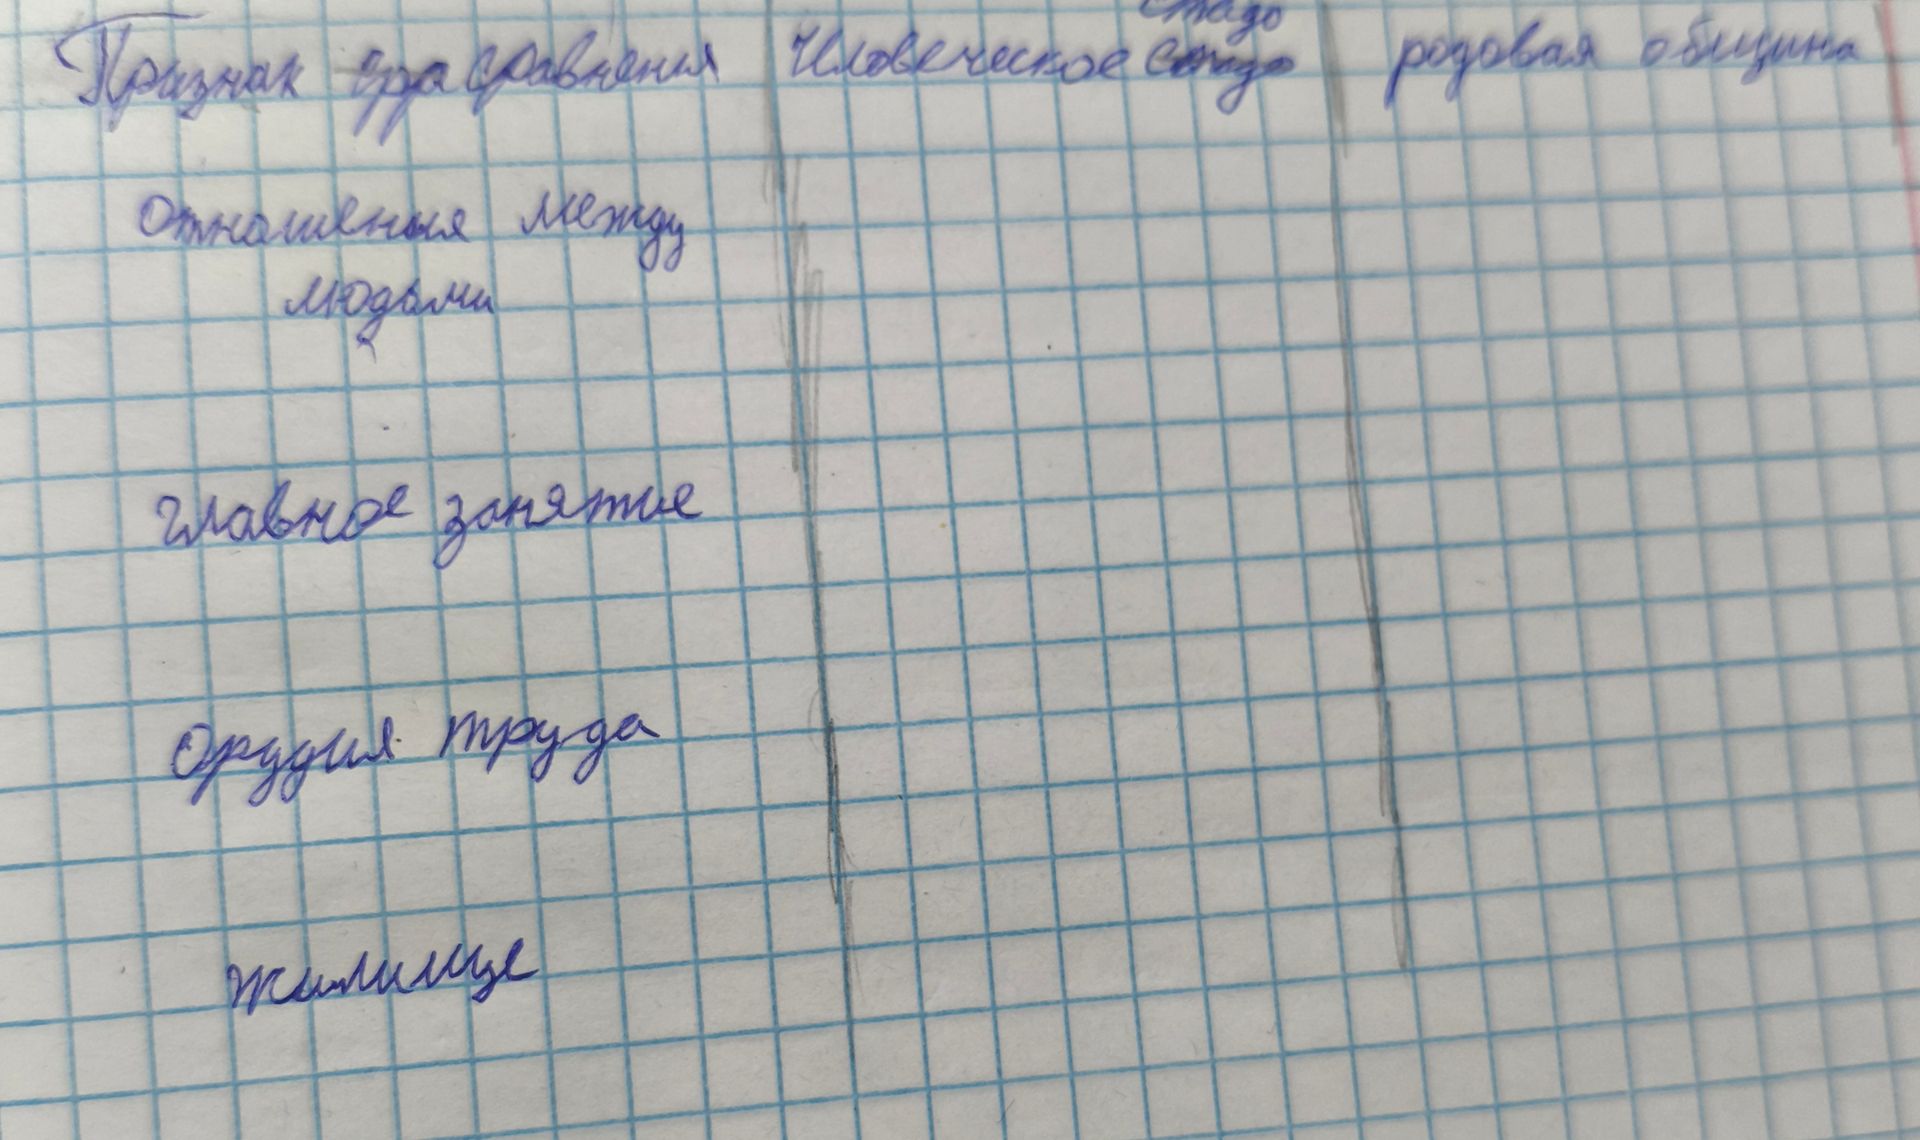 стадо
Признак сравнения Человеческое стадо родовая община
Отношения между
людьми
главное занятие
Орудия труда
жилище